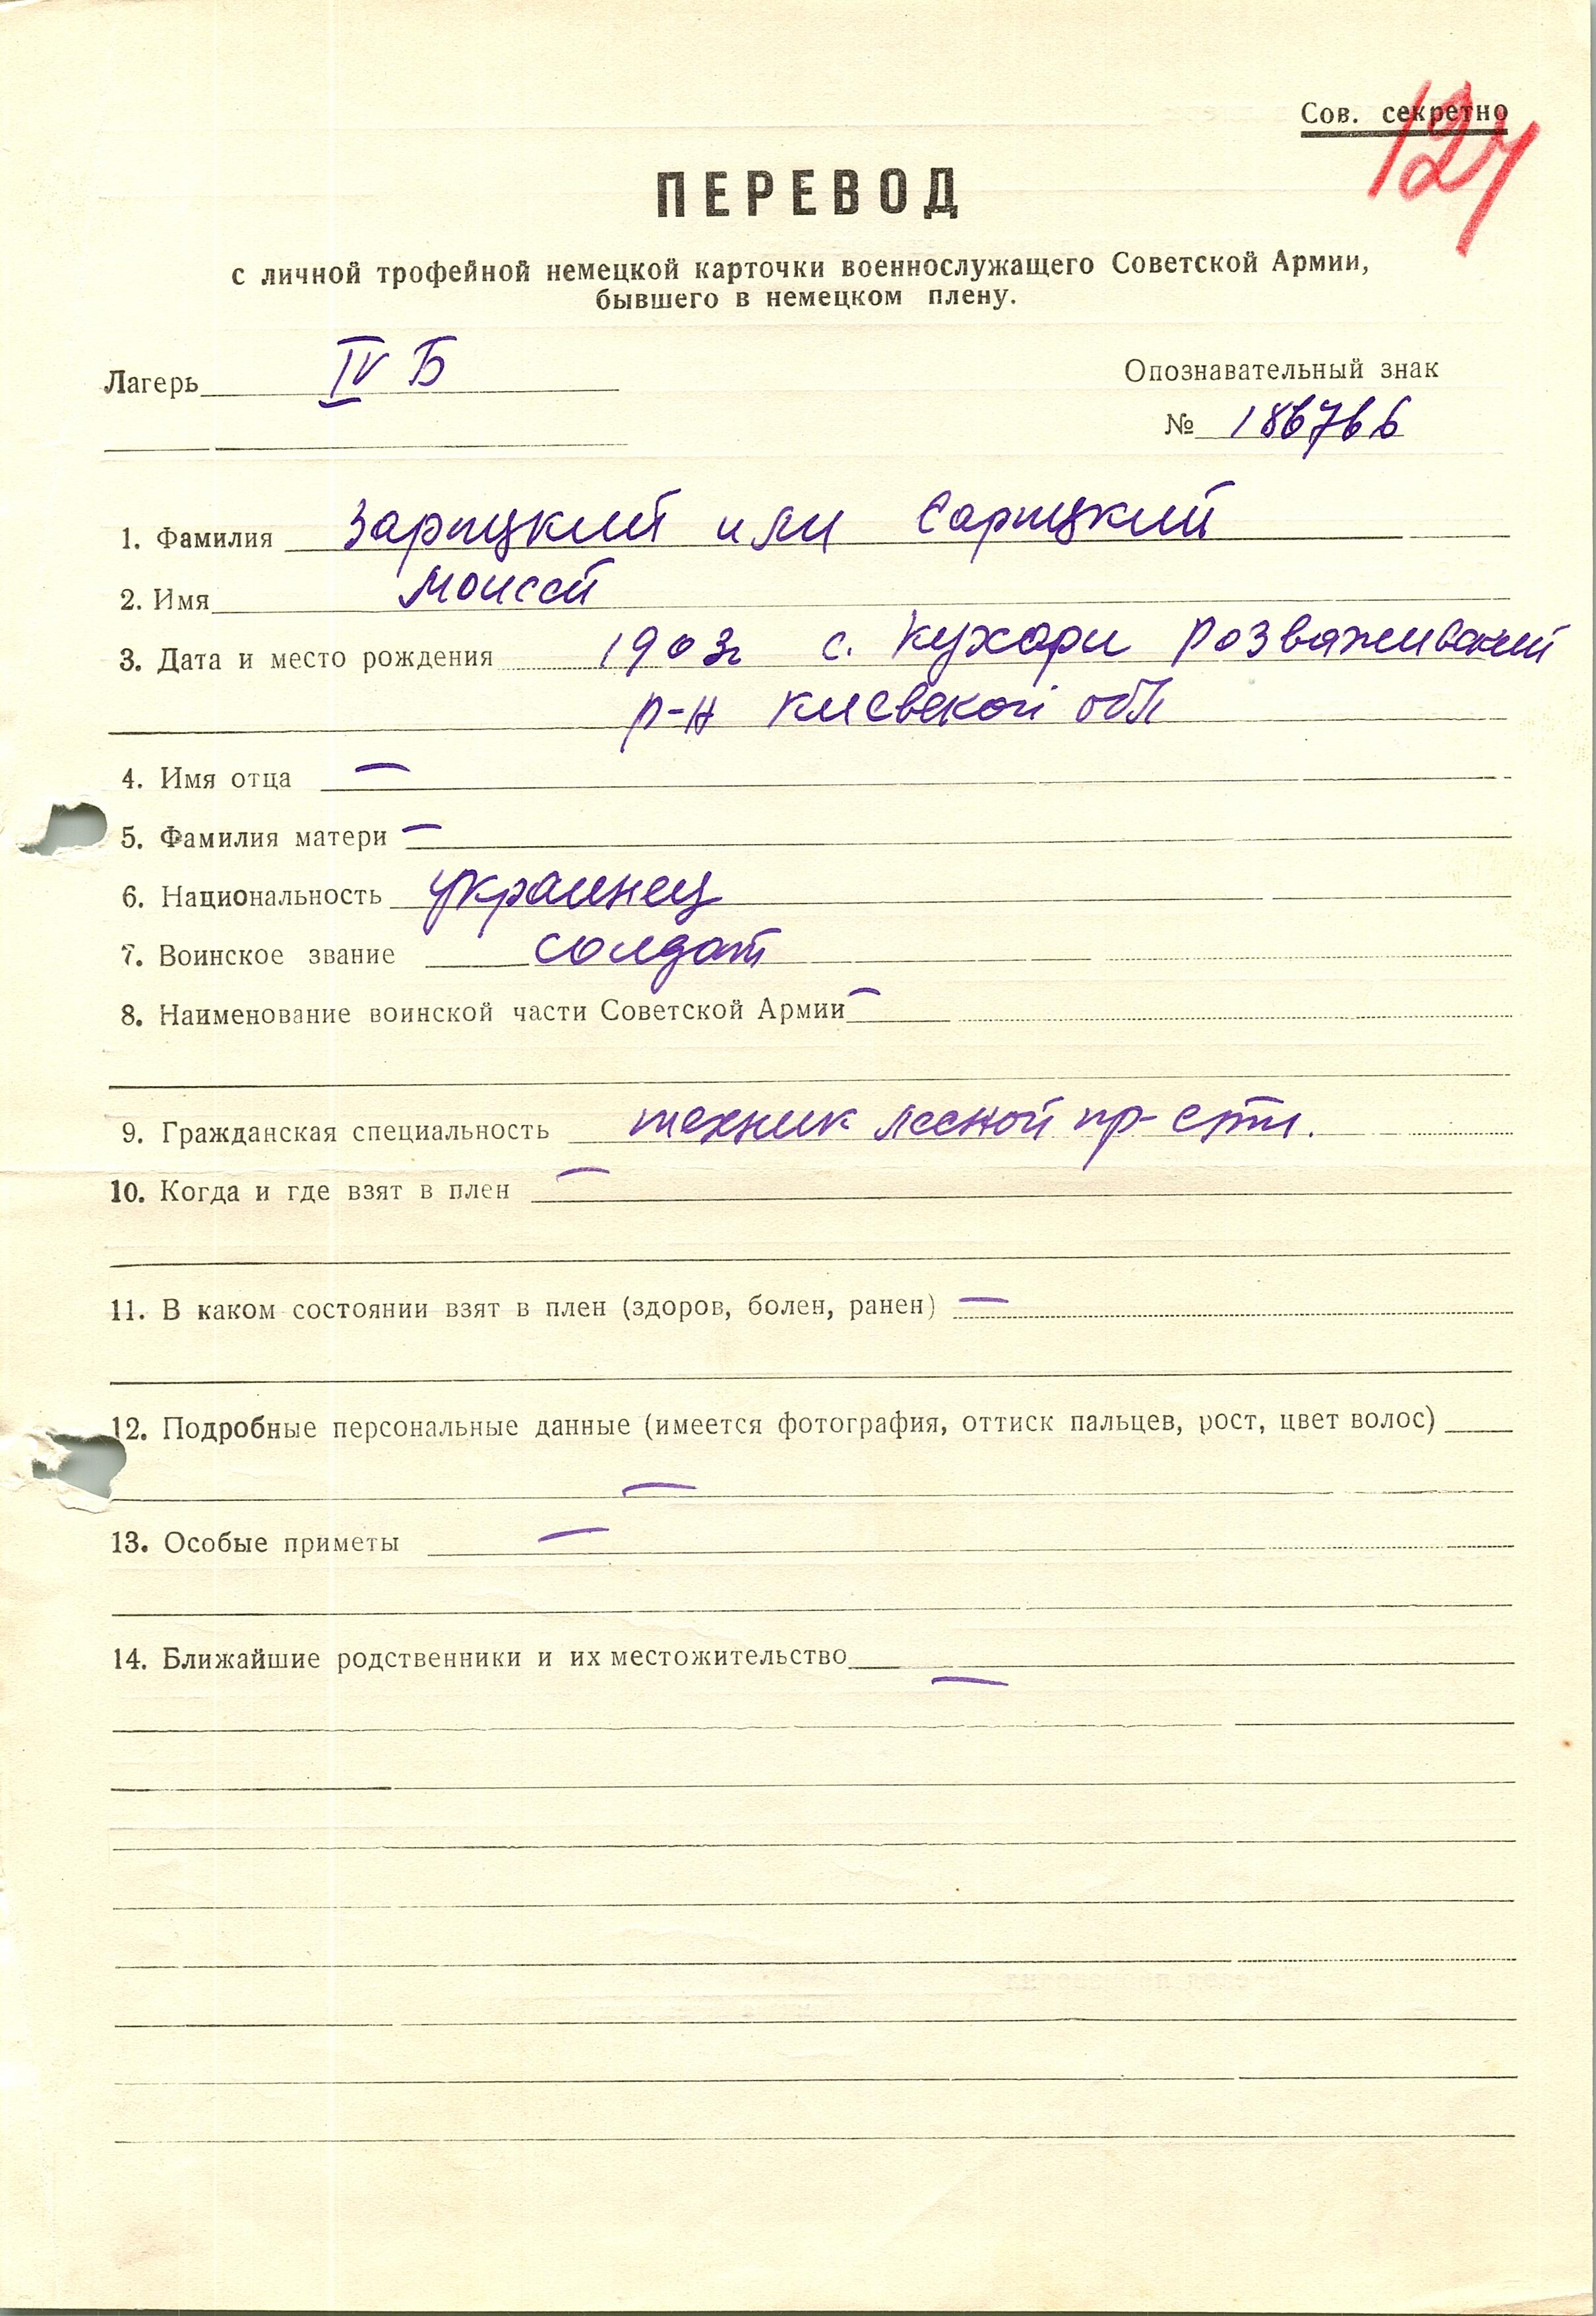 Сов. секретно
127
ПЕРЕВОД
с личной трофейной немецкой карточки военнослужащего Советской Армии,
бывшего в немецком плену.
Лагерь IV Б
Опознавательный знак
№ 186766
1. Фамилия Зарицкий или Сарицкий
2. Имя Моисей
3. Дата и место рождения 1903г с. Кухари Розважевский
р-н Киевской обл
4. Имя отца —
5. Фамилия матери —
6. Национальность украинец
7. Воинское звание солдат
8. Наименование воинской части Советской Армии —
9. Гражданская специальность техник лесной пр-сти.
10. Когда и где взят в плен —
11. В каком состоянии взят в плен (здоров, болен, ранен) —
12. Подробные персональные данные (имеется фотография, оттиск пальцев, рост, цвет волос)
—
13. Особые приметы —
14. Ближайшие родственники и их местожительство
—